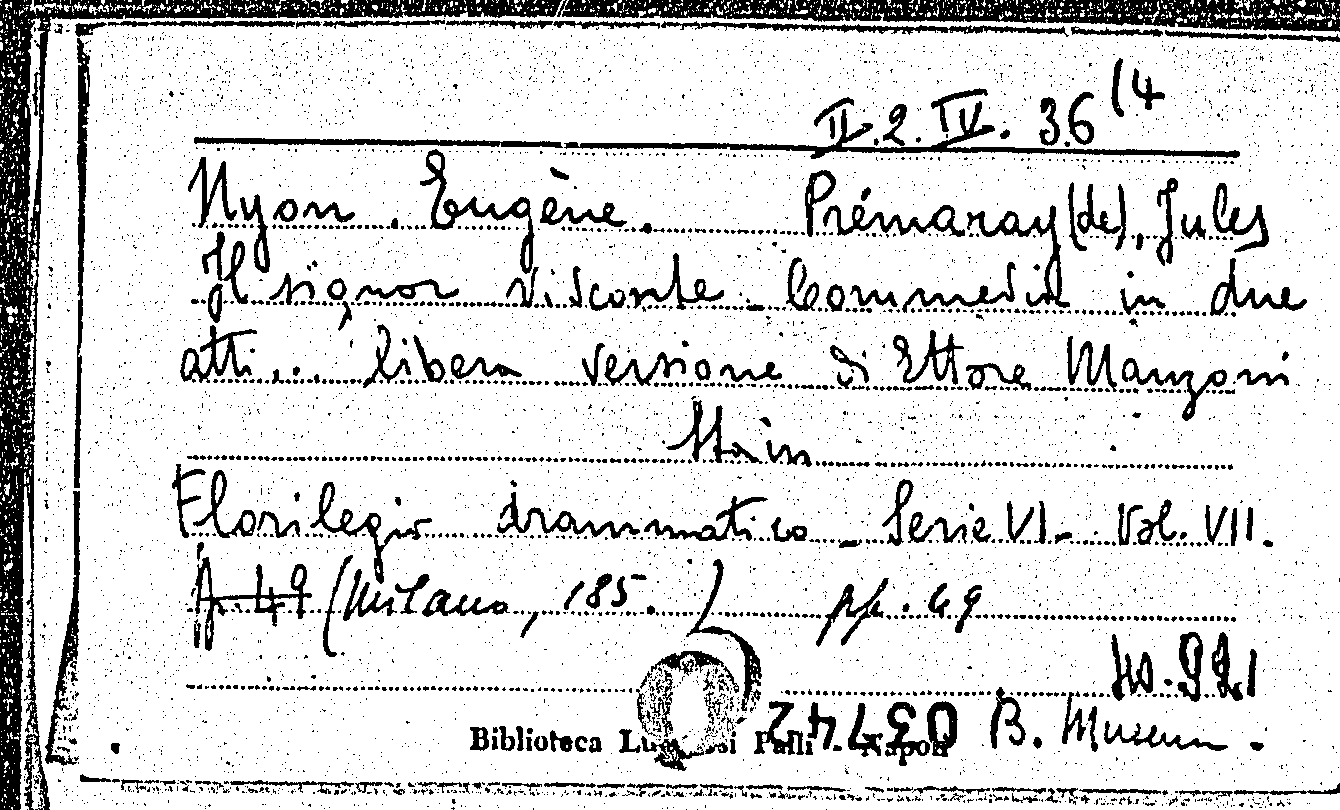 II.2.IV. 36 (4
Nyon. Eugène. Prémaray (de), Jules
Il signor Visconte - Commedia in due
atti... Libera versione di Ettore Manzoni
Florilegio drammatico - Serie VI - Vol. VII.
(Milano, 185. ) pp. 49
B. Museum.
Biblioteca Palli - Napoli
03742